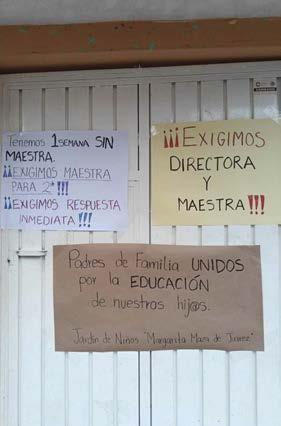 Tenemos 1 SEMANA SIN
MAESTRA.
¡¡EXIGIMOS MAESTRA
PARA 2° !!!
¡¡EXIGIMOS RESPUESTA
INMEDIATA!!!
¡¡¡EXIGIMOS
DIRECTORA
Y
MAESTRA!!!
Padres de Familia UNIDOS
por la EDUCACIÓN
de nuestros hij@s.
Jardín de Niños "Margarita Maza de Juárez"